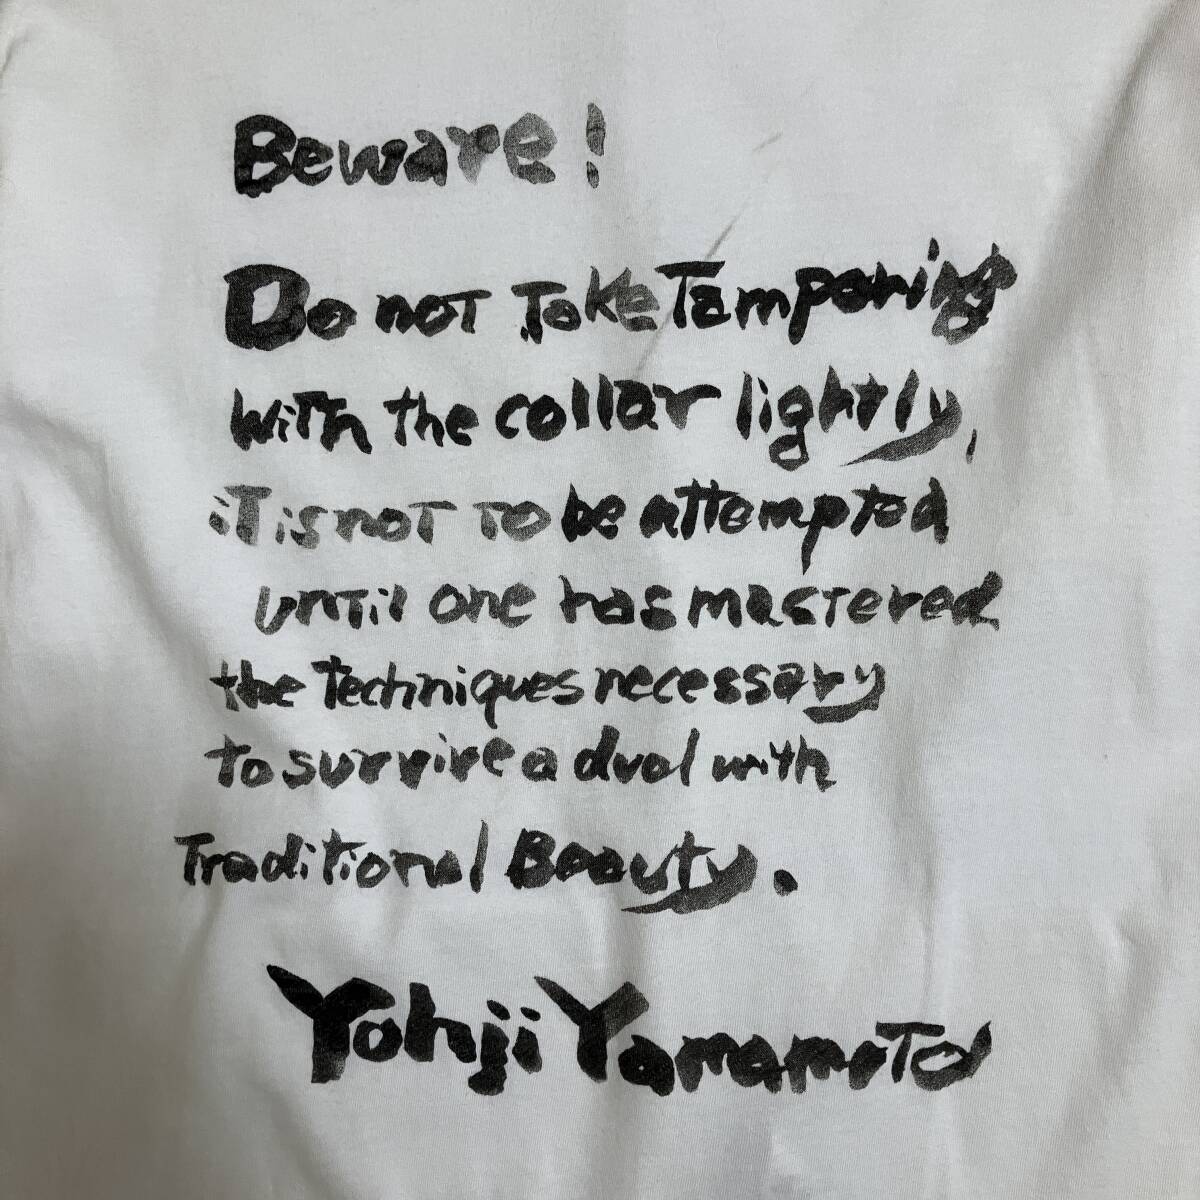 Beware!
Do not Take Tampering
with the collar lightly,
it is not to be attempted
until one has mastered
the Techniques necessary
to survive a dual with
Traditional Beauty.
Yohji Yamamoto